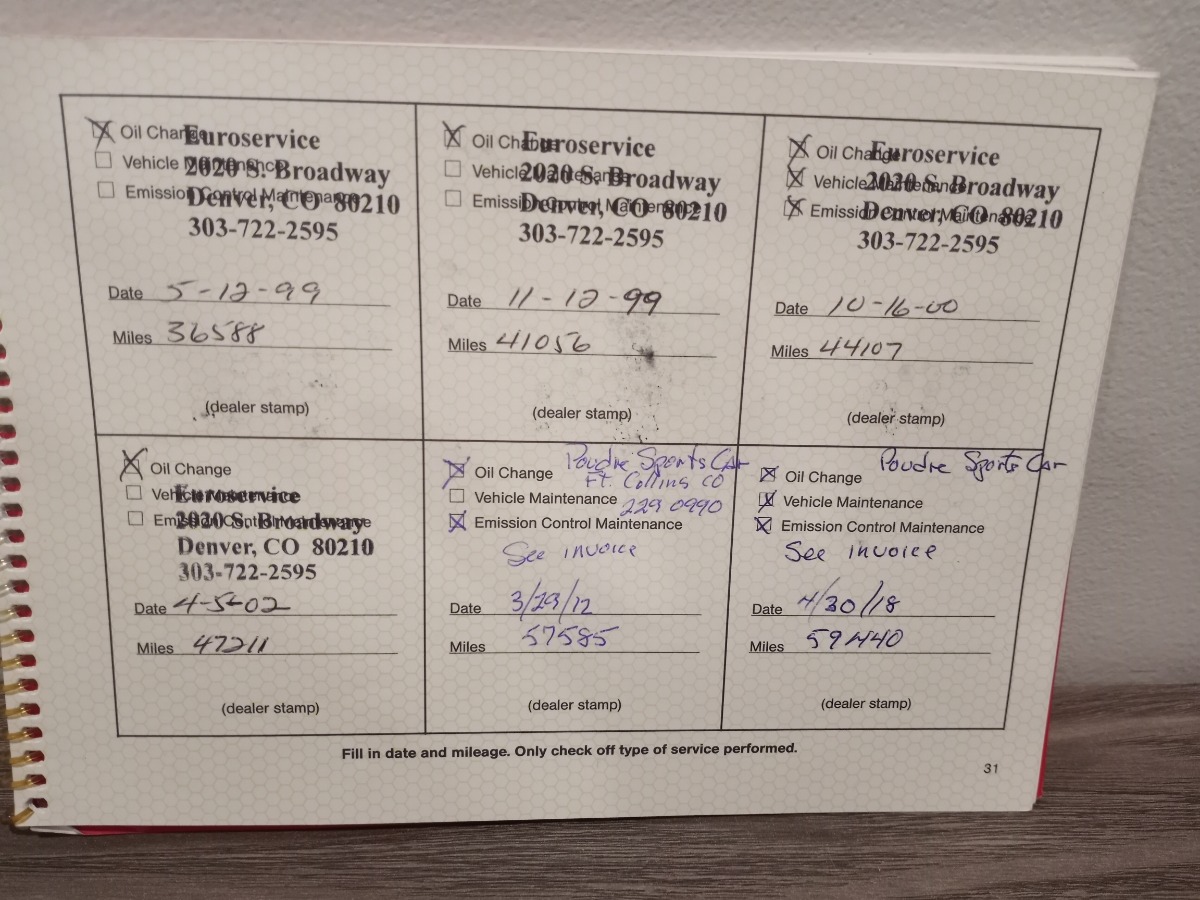 Oil Change Euroservice
Vehicle Maintenance 2020 S. Broadway
Emission Control Maintenance Denver, CO 80210
303-722-2595
Date 5-12-99
Miles 36588
(dealer stamp)
Oil Change Euroservice
Vehicle Maintenance 2020 S. Broadway
Emission Control Maintenance Denver, CO 80210
303-722-2595
Date 11-12-99
Miles 41056
(dealer stamp)
Oil Change Euroservice
Vehicle Maintenance 2020 S. Broadway
Emission Control Maintenance Denver, CO 80210
303-722-2595
Date 10-16-00
Miles 44107
(dealer stamp)
Oil Change
Vehicle Maintenance Euroservice
Emission Control Maintenance 2020 S. Broadway
Denver, CO 80210
303-722-2595
Date 4-5-02
Miles 47211
(dealer stamp)
Poudre Sports Car
Oil Change Ft. Collins CO
Vehicle Maintenance 229 0990
Emission Control Maintenance
See invoice
Date 3/29/12
Miles 57585
(dealer stamp)
Poudre Sports Car
Oil Change
Vehicle Maintenance
Emission Control Maintenance
See invoice
Date 4/30/18
Miles 59440
(dealer stamp)
Fill in date and mileage. Only check off type of service performed.
31